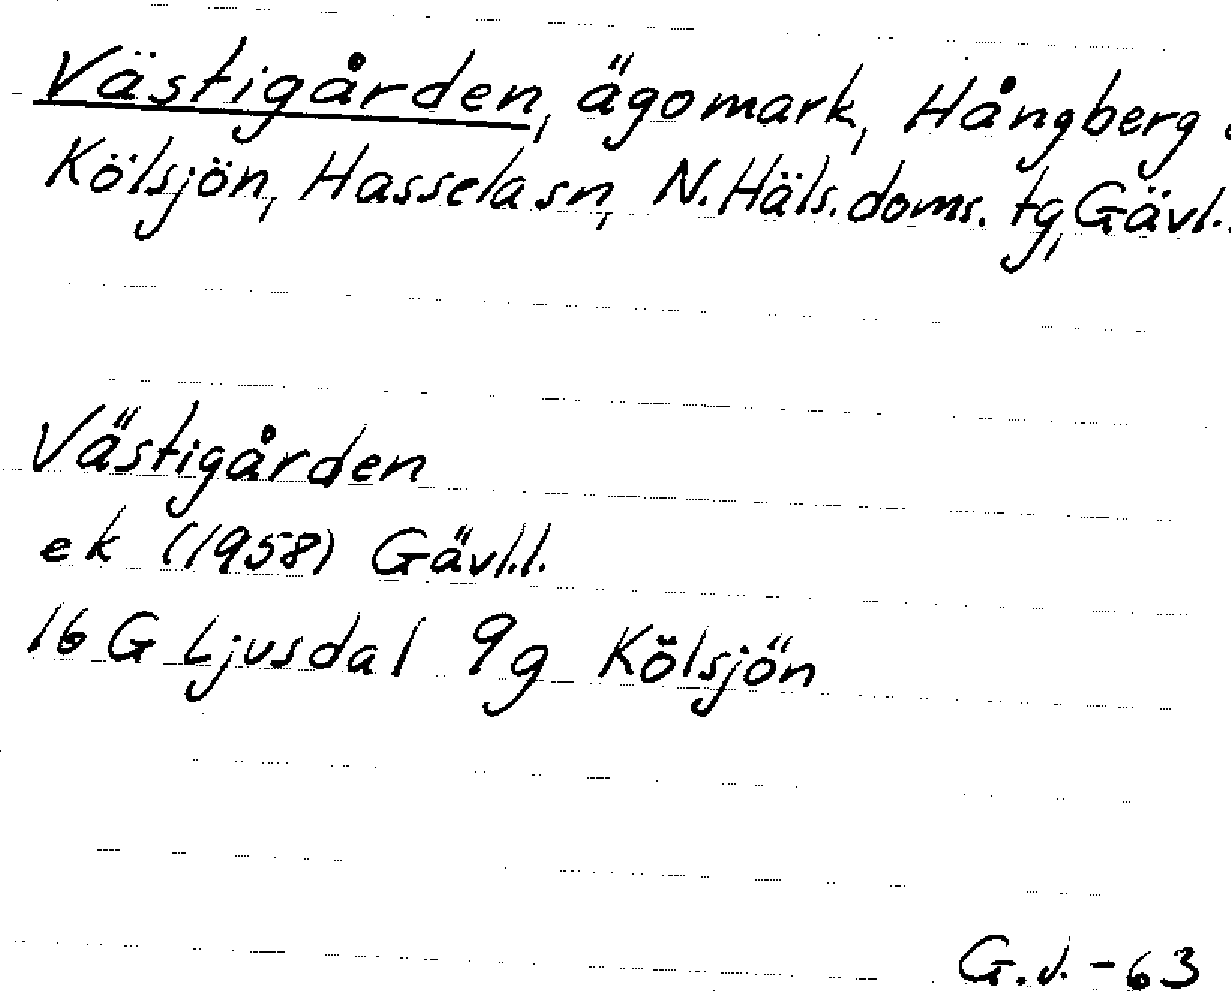 Västigården, ägomark, Hångberg
Kölsjön, Hassela sn, N. Häls. doms. tg, Gävl.
Västigården
ek (1958) Gävl.l.
16 G Ljusdal 9g Kölsjön
G.J. -63